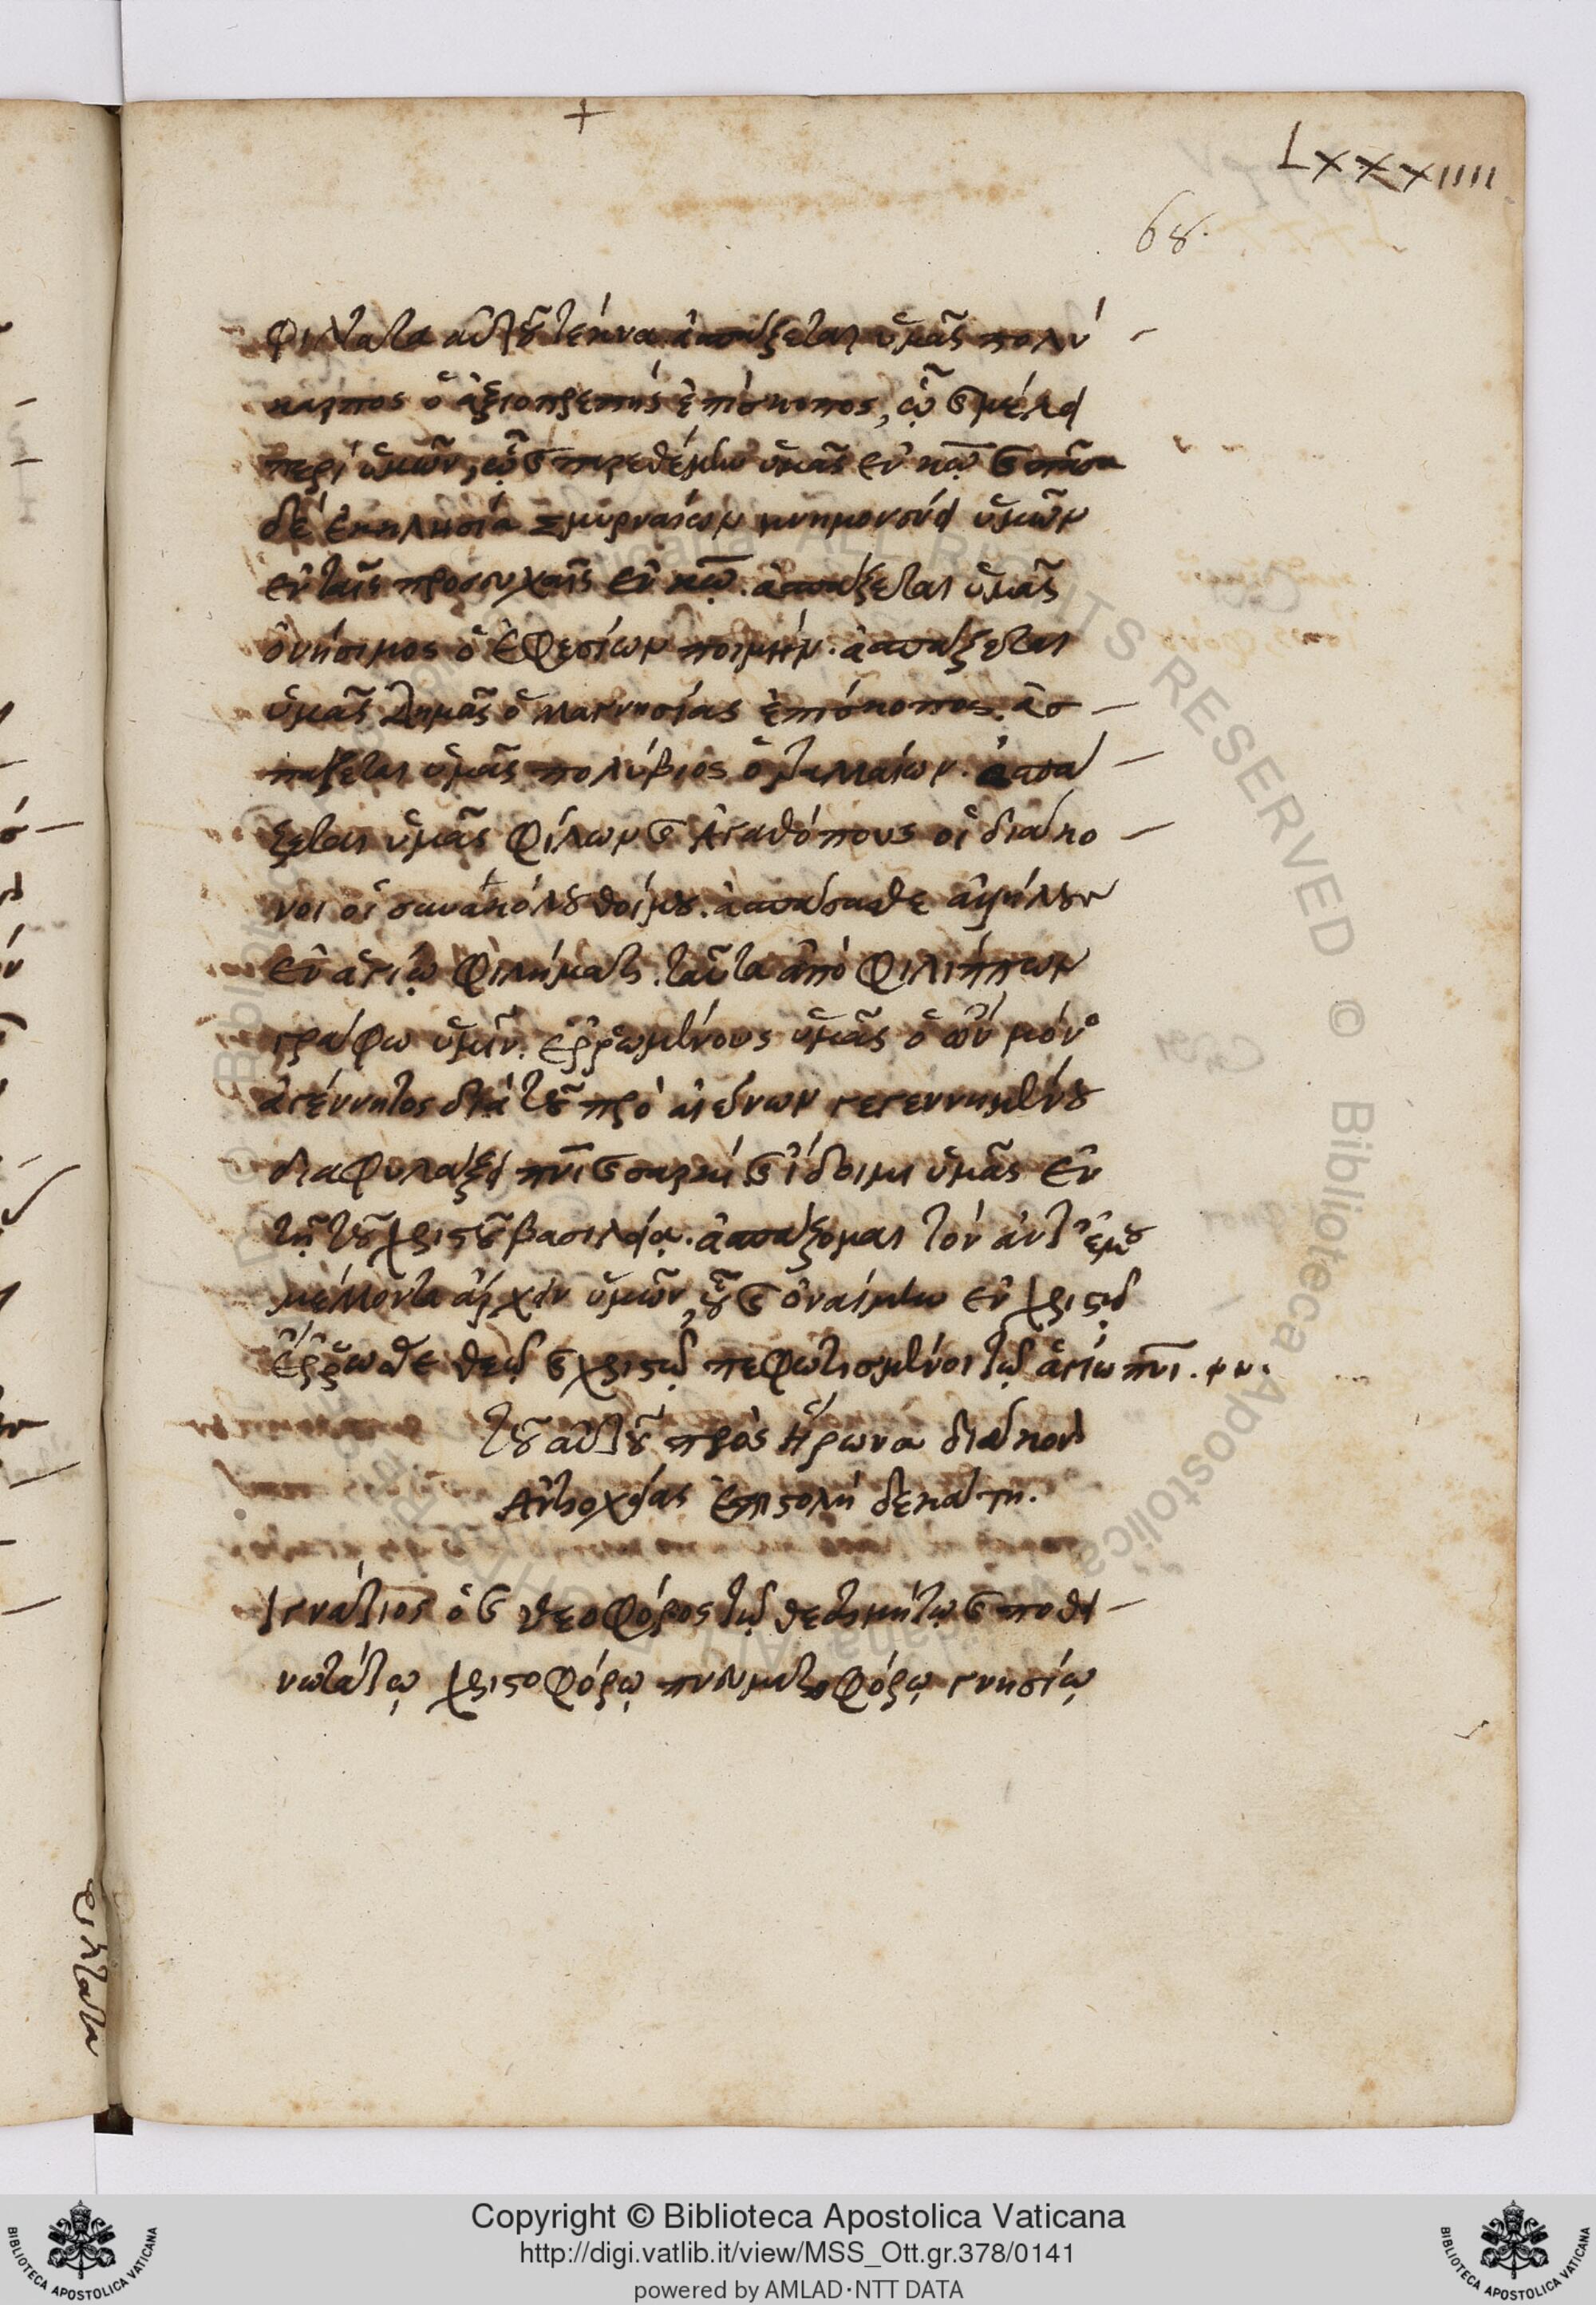 +
Lxxxiiii
68.
φίλτατα αὐτοῦ τέκνα. ἀσπάζεται ὑμᾶς πολύ
καρπος ὁ ἀξιοπρεπὴς ἐπίσκοπος, ᾧ καὶ μέλει
περὶ ὑμῶν, ᾧ καὶ παρεθέμην ὑμᾶς ἐν κω καὶ πᾶσα
δὲ ἐκκλησία Σμυρναίων μνημονεύει ὑμῶν
ἐν ταῖς προσευχαῖς ἐν κω. ἀσπάζεται ὑμᾶς
ὀνήσιμος ὁ ἐφεσίων ποιμήν. ἀσπάζεται
ὑμᾶς Δημᾶς ὁ μαγνησίας ἐπίσκοπος. ἀσ
πάζεται ὑμᾶς πολύβιος ὁ τραλλαίων. ἀσπά
ζεται ὑμᾶς φίλων καὶ Ἀγαθόπους οἱ διάκο
νοι οἱ συνακόλουθοί μου. ἀσπάσασθε ἀλλήλους
ἐν ἁγίῳ φιλήματι. ταῦτα ἀπὸ φιλίππων
γράφω ὑμῖν. ἐῤῥωμένους ὑμᾶς ὁ ὢν μόνος
ἀγέννητος διὰ τοῦ πρὸ αἰώνων γεγεννημένου
διαφυλάξει πνι καὶ σαρκί. καὶ ἴδοιμι ὑμᾶς ἐν
τῇ τοῦ χριστοῦ βασιλείᾳ. ἀσπάζομαι τὸν ἀντ' ἐμοῦ
μέλλοντα ἄρχειν ὑμῶν, οὗ καὶ ὀναίμην ἐν χριστῷ
ἔῤῥωσθε θεῷ καὶ χριστῷ πεφωτισμένοι τῷ ἁγίῳ πνι.
τοῦ αὐτοῦ πρὸς Ἥρωνα διάκονον
Ἀντιοχείας ἐπιστολὴ δεκάτη.
Ἰγνάτιος ὁ καὶ θεοφόρος τῷ θεοτιμήτῳ καὶ ποθει
νωτάτῳ χριστοφόρῳ πνευματοφόρῳ γνησίῳ
φίλτατα
Copyright © Biblioteca Apostolica Vaticana
http://digi.vatlib.it/view/MSS_Ott.gr.378/0141
powered by AMLAD·NTT DATA